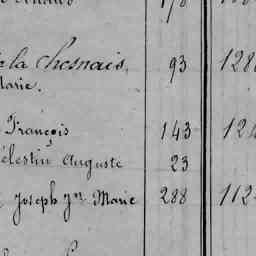 178
de la Chesnais, 93 128
Marie.
François 143 124
Célestin Auguste 23
Joseph Jn Marie 288 112